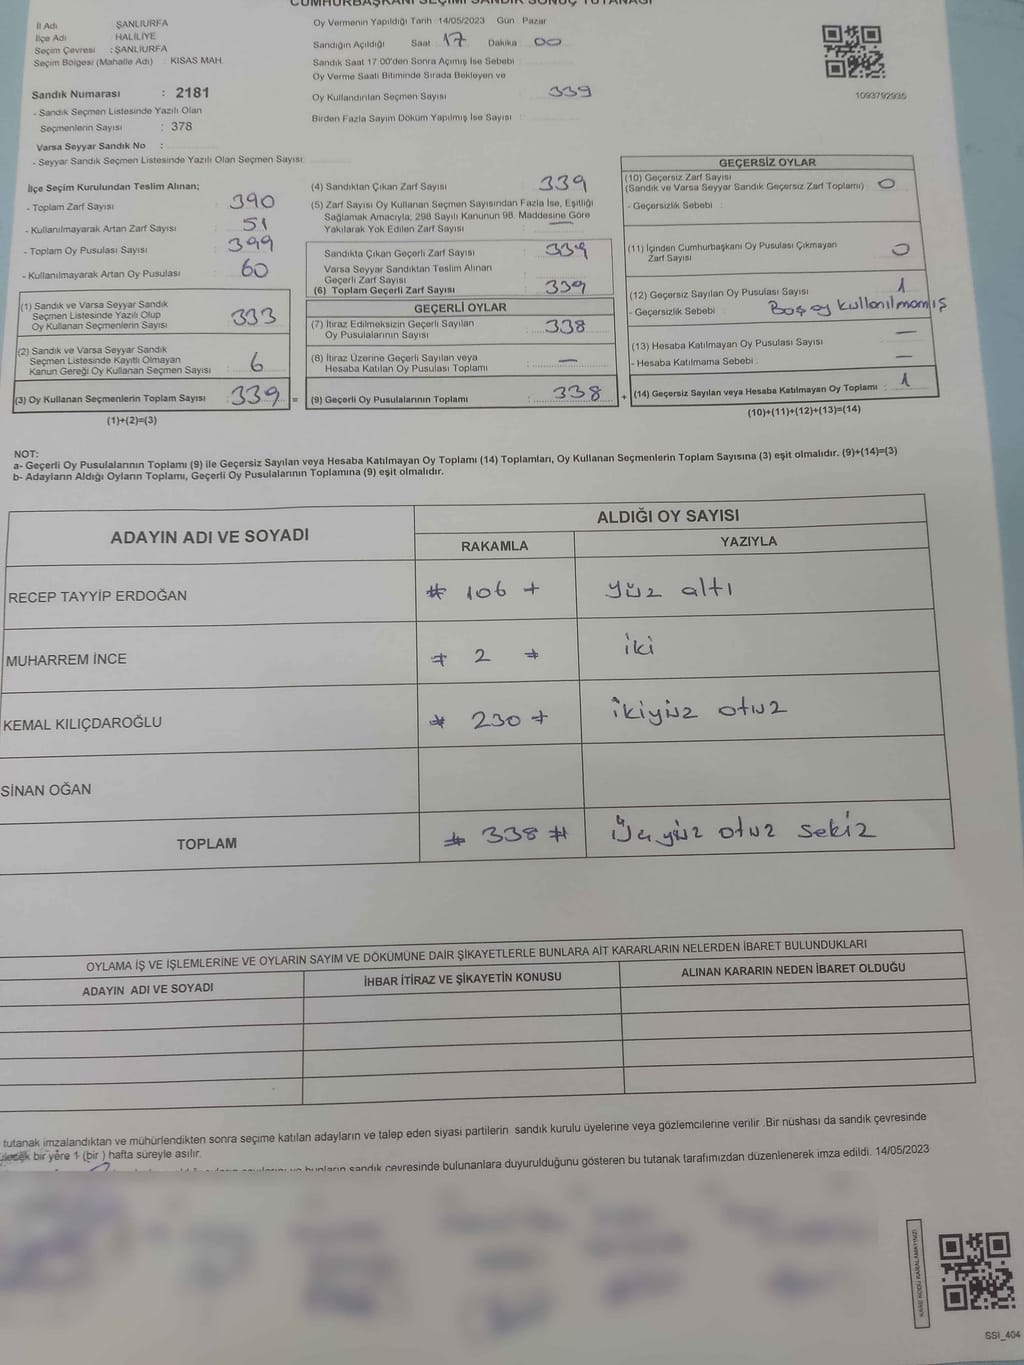 CUMHURBAŞKANI SEÇİMİ SANDIK SONUÇ TUTANAĞI
İl Adı ŞANLIURFA
İlçe Adı HALİLİYE
Seçim Çevresi : ŞANLIURFA
Seçim Bölgesi (Mahalle Adı) KISAS MAH.
Sandık Numarası : 2181
- Sandık Seçmen Listesinde Yazılı Olan
Seçmenlerin Sayısı : 378
Varsa Seyyar Sandık No :
- Seyyar Sandık Seçmen Listesinde Yazılı Olan Seçmen Sayısı:
Oy Vermenin Yapıldığı Tarih : 14/05/2023 Gün : Pazar
Sandığın Açıldığı Saat 17 Dakika 00
Sandık Saat 17 00'den Sonra Açımış İse Sebebi
Oy Verme Saati Bitiminde Sırada Bekleyen ve
Oy Kullandırılan Seçmen Sayısı 339
Birden Fazla Sayım Döküm Yapılmış İse Sayısı :
1093792935
İlçe Seçim Kurulundan Teslim Alınan;
- Toplam Zarf Sayısı : 390
- Kullanılmayarak Artan Zarf Sayısı : 51
- Toplam Oy Pusulası Sayısı : 399
- Kullanılmayarak Artan Oy Pusulası : 60
(1) Sandık ve Varsa Seyyar Sandık
Seçmen Listesinde Yazılı Olup
Oy Kullanan Seçmenlerin Sayısı : 333
(2) Sandık ve Varsa Seyyar Sandık
Seçmen Listesinde Kayıtlı Olmayan
Kanun Gereği Oy Kullanan Seçmen Sayısı : 6
(3) Oy Kullanan Seçmenlerin Toplam Sayısı : 339 =
(1)+(2)=(3)
(4) Sandıktan Çıkan Zarf Sayısı 339
(5) Zarf Sayısı Oy Kullanan Seçmen Sayısından Fazla İse, Eşitliği
Sağlamak Amacıyla; 298 Sayılı Kanunun 98. Maddesine Göre
Yakılarak Yok Edilen Zarf Sayısı : —
Sandıkta Çıkan Geçerli Zarf Sayısı : 339
Varsa Seyyar Sandıktan Teslim Alınan
Geçerli Zarf Sayısı
(6) Toplam Geçerli Zarf Sayısı : 339
GEÇERLİ OYLAR
(7) İtiraz Edilmeksizin Geçerli Sayılan
Oy Pusulalarının Sayısı : 338
(8) İtiraz Üzerine Geçerli Sayılan veya
Hesaba Katılan Oy Pusulası Toplamı : —
(9) Geçerli Oy Pusulalarının Toplamı : 338 +
GEÇERSİZ OYLAR
(10) Geçersiz Zarf Sayısı
(Sandık ve Varsa Seyyar Sandık Geçersiz Zarf Toplamı) : 0
- Geçersizlik Sebebi :
(11) İçinden Cumhurbaşkanı Oy Pusulası Çıkmayan
Zarf Sayısı : 0
(12) Geçersiz Sayılan Oy Pusulası Sayısı : 1
- Geçersizlik Sebebi : Boş oy kullanılmamış
(13) Hesaba Katılmayan Oy Pusulası Sayısı : —
- Hesaba Katılmama Sebebi : —
(14) Geçersiz Sayılan veya Hesaba Katılmayan Oy Toplamı : 1
(10)+(11)+(12)+(13)=(14)
NOT:
a- Geçerli Oy Pusulalarının Toplamı (9) ile Geçersiz Sayılan veya Hesaba Katılmayan Oy Toplamı (14) Toplamları, Oy Kullanan Seçmenlerin Toplam Sayısına (3) eşit olmalıdır. (9)+(14)=(3)
b- Adayların Aldığı Oyların Toplamı, Geçerli Oy Pusulalarının Toplamına (9) eşit olmalıdır.
ADAYIN ADI VE SOYADI ALDIĞI OY SAYISI
RAKAMLA YAZIYLA
RECEP TAYYİP ERDOĞAN # 106 + yüz altı
MUHARREM İNCE # 2 # iki
KEMAL KILIÇDAROĞLU # 230 + ikiyüz otuz
SİNAN OĞAN
TOPLAM # 338 # Üçyüz otuz sekiz
OYLAMA İŞ VE İŞLEMLERİNE VE OYLARIN SAYIM VE DÖKÜMÜNE DAİR ŞİKAYETLERLE BUNLARA AİT KARARLARIN NELERDEN İBARET BULUNDUKLARI
ADAYIN ADI VE SOYADI İHBAR İTİRAZ VE ŞİKAYETİN KONUSU ALINAN KARARIN NEDEN İBARET OLDUĞU
tutanak imzalandıktan ve mühürlendikten sonra seçime katılan adayların ve talep eden siyasi partilerin sandık kurulu üyelerine veya gözlemcilerine verilir .Bir nüshası da sandık çevresinde
bir yere 1 (bir ) hafta süreyle asılır.
bunların sandık çevresinde bulunanlara duyurulduğunu gösteren bu tutanak tarafımızdan düzenlenerek imza edildi. 14/05/2023
KARE KODU KARALAMAYINIZ!
SSI_404